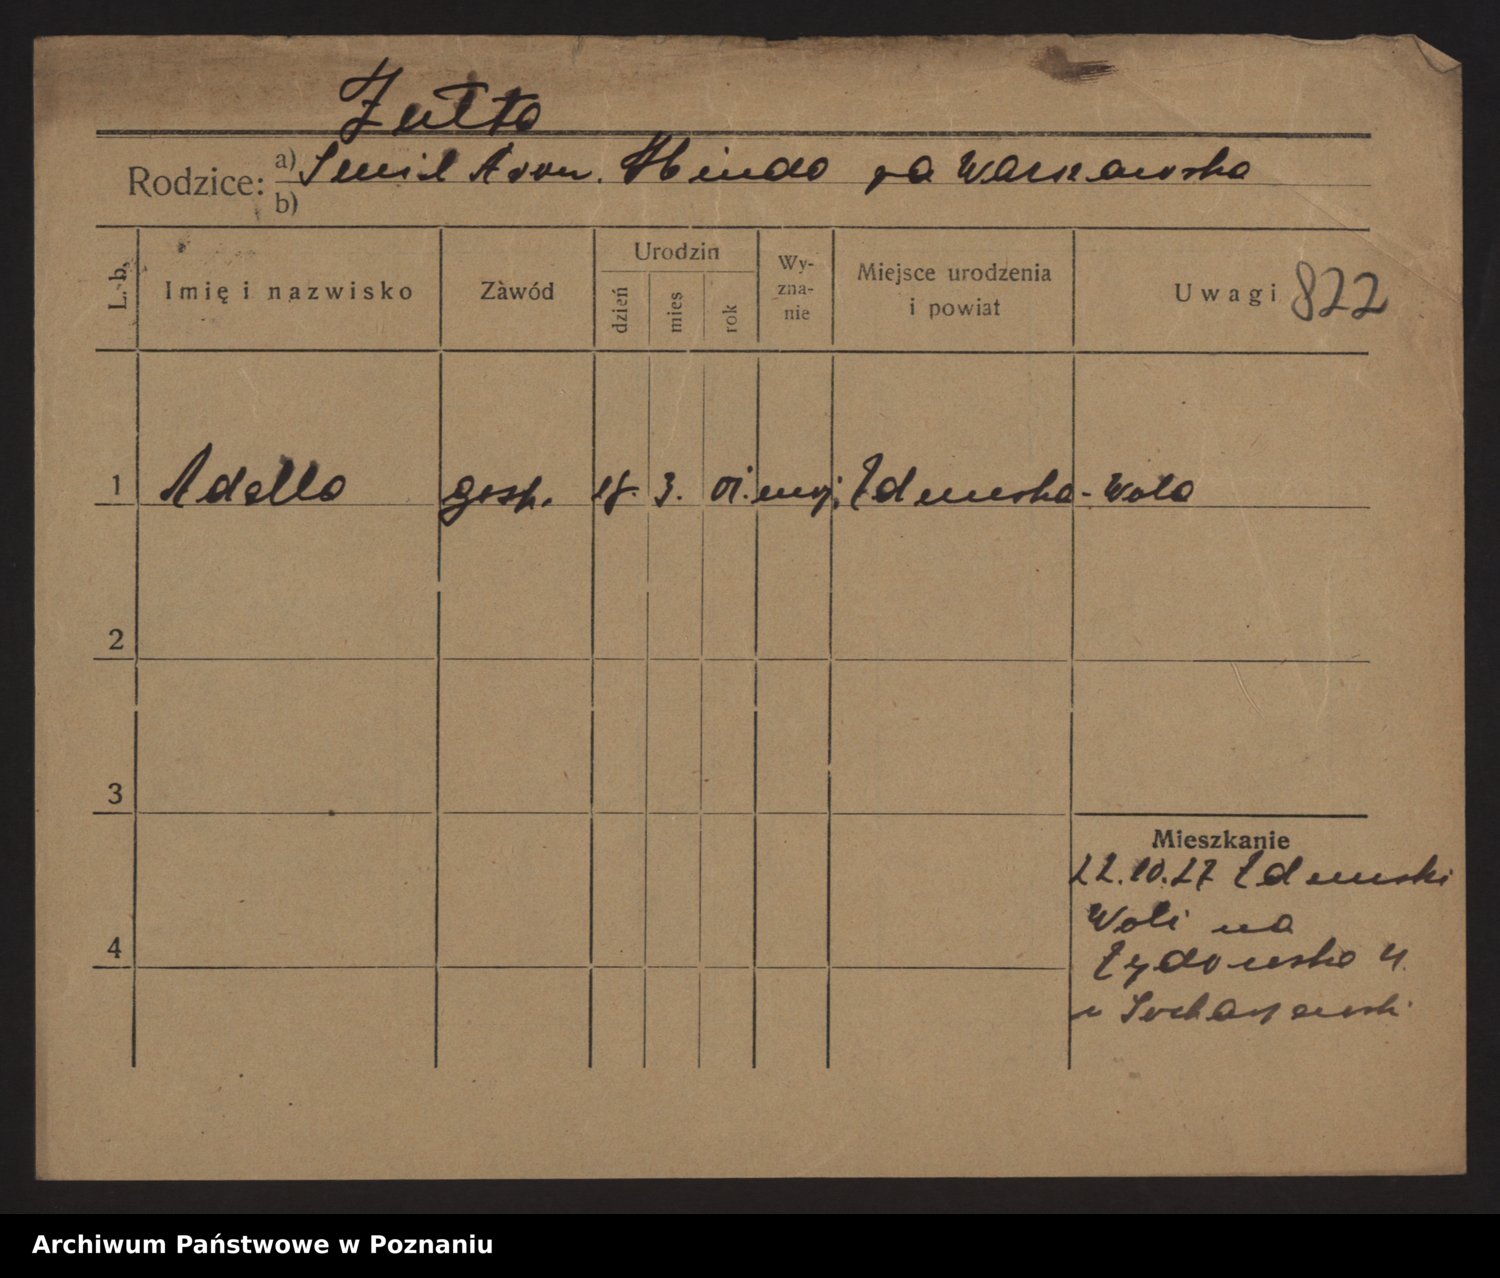 Żułta
Rodzice: a) Smil Aron. Hinda za Warszawska
b)
L. b. Imię i nazwisko Zàwód Urodzin dzień mies rok Wy-zna-nie Miejsce urodzenia i powiat Uwagi 822
1 Adella gosp. 18. 3. 01. moj. Zdunska-Wola
2
3
Mieszkanie
22.10.27 Zdunski
Woli na
4 Żydowska 4.
u Sochaczewski
Archiwum Państwowe w Poznaniu